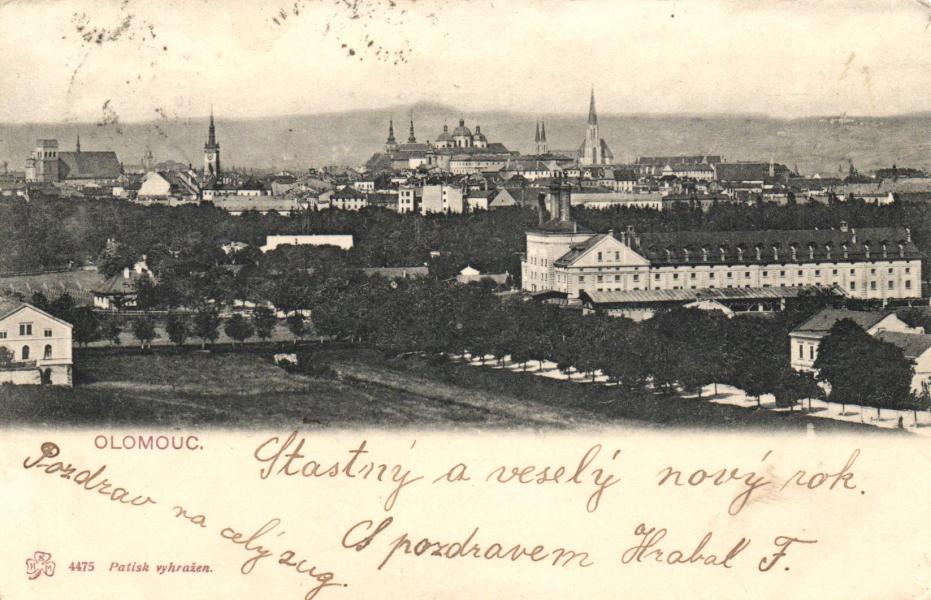 OLOMOUC.
Stastný a veselý nový rok.
S pozdravem Hrabal F.
Pozdrav na celý zug.
4475 Patisk vyhražen.